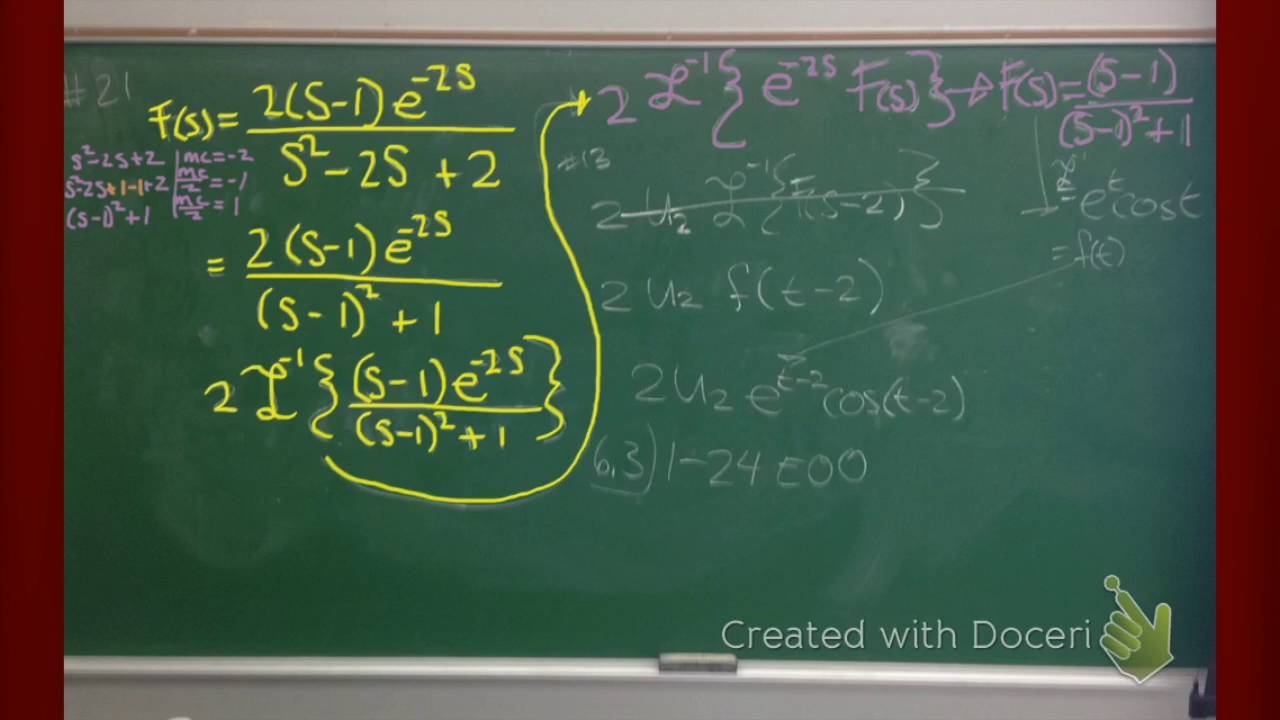 #21
F(s) = 2(s-1)e^-2s / s^2 - 2s + 2
s^2-2s+2 | mc=-2
s^2-2s+1-1+2 | mc/2 = -1
(s-1)^2+1 | mc/2 = 1
= 2(s-1)e^-2s / (s-1)^2 + 1
2 ℒ^-1 { (s-1)e^-2s / (s-1)^2 + 1 }
2 ℒ^-1 { e^-2s F(s) } → F(s) = (s-1) / (s-1)^2 + 1
#13
2 u2 ℒ^-1 { F(s-2) }
ℒ^-1 → = e^t cos t
= f(t)
2 u2 f(t-2)
2 u2 e^t-2 cos(t-2)
6.3) 1-24 EOO
Created with Doceri